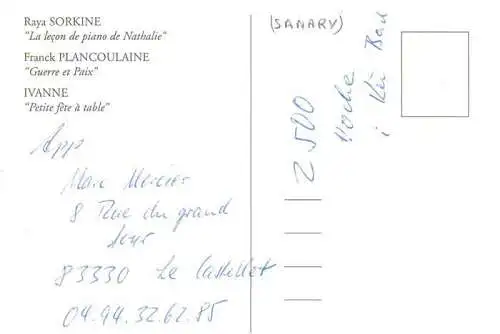 Raya SORKINE
"La leçon de piano de Nathalie"
Franck PLANCOULAINE
"Guerre et Paix"
IVANNE
"Petite fête à table"
App
Marc Mercier
8 Rue du grand
four
83330 Le Castellet
04.94.32.62.85
(SANARY)
2500
Woche
i